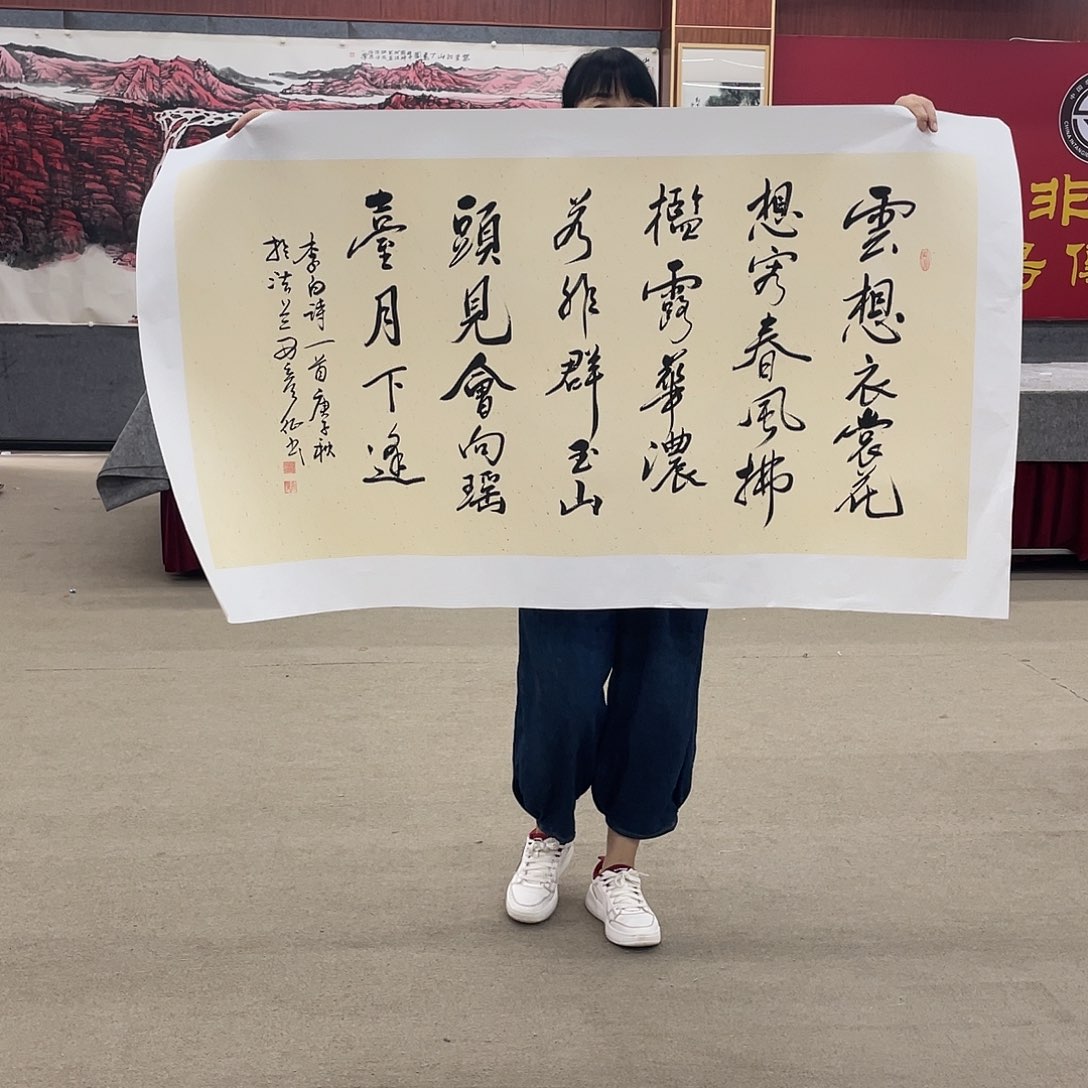 雲想衣裳花
想容春風拂
檻露華濃
若非群玉山
頭見會向瑶
臺月下逢
李白詩一首庚子秋
书
非
中国
CHINA INTANG